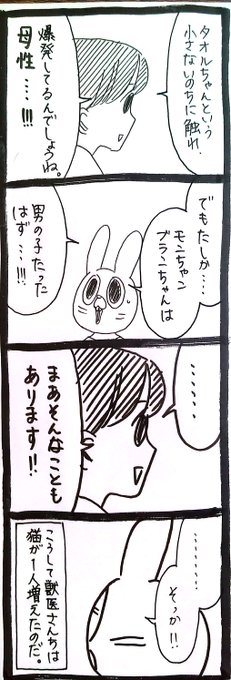 タオルちゃんという
小さないのちに触れ、
爆発してるんでしょうね。
母性
····!!!
でもたしか····
モンちゃん
プラニちゃんは
男の子だった
はず···!!!
······
まあそんなことも
あります!!
·········
そっか!!
こうして獣医さんちは
猫が1人増えたのだ。